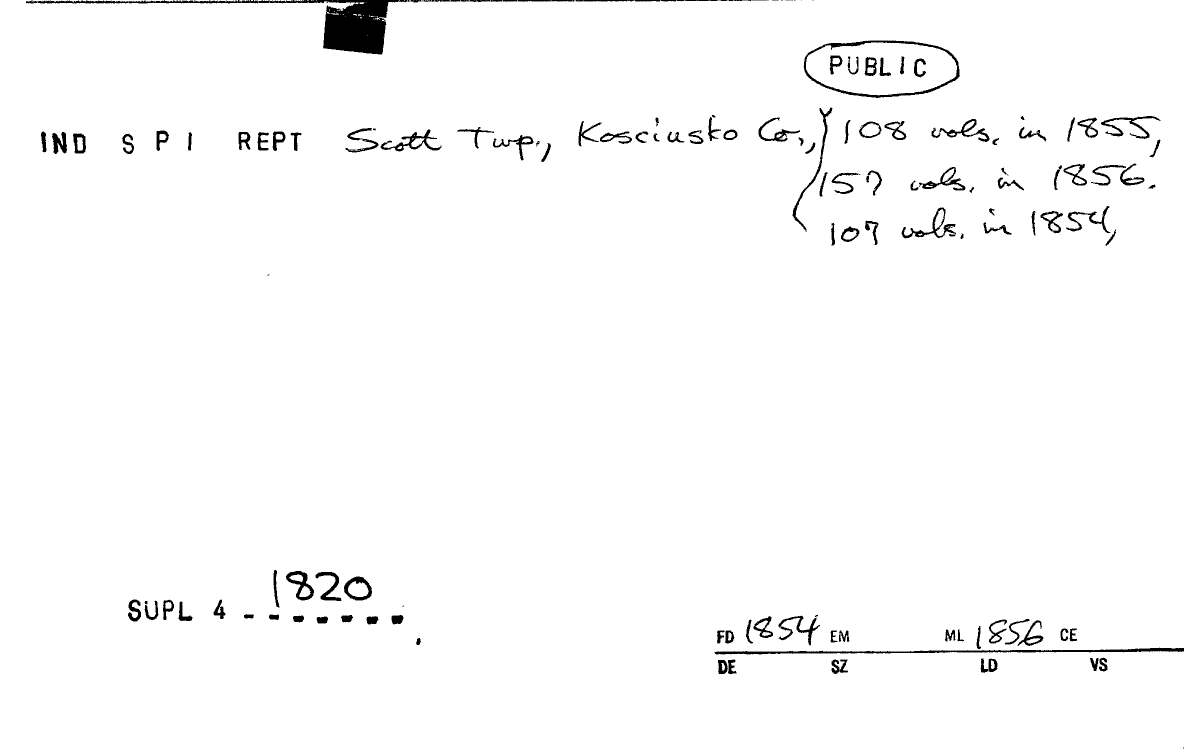 PUBLIC
IND S P I REPT Scott Twp., Kosciusko Co., 108 vols. in 1855,
157 vols. in 1856.
107 vols. in 1854,
1820
SUPL 4 - - - - - - -
FD 1854 EM ML 1856 CE
DE SZ LD VS